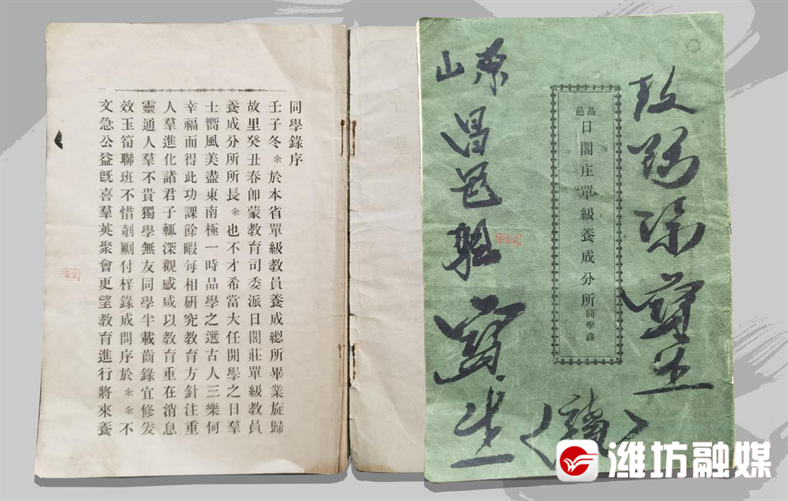 同學錄序
壬子冬余於本省單級教員養成總所畢業旋歸
故里癸丑春卽蒙教育司委派日閣莊單級教員
養成分所所長余也不才希當大任開學之日羣
士嚮風美盡東南極一時品學之選古人三樂何
幸福而得此功課餘暇每相研究教育方針注重
人羣進化諸君子輒深觀感咸以教育重在消息
靈通人羣不貴獨學無友同學半載齒錄宜修爰
效玉筍聯班不惜剞劂付梓錄成問序於余余不
文急公益旣喜羣英聚會更望教育進行將來養
昌邑
日閣庄單級養成分所同學錄
山東
昌邑
濰坊融媒